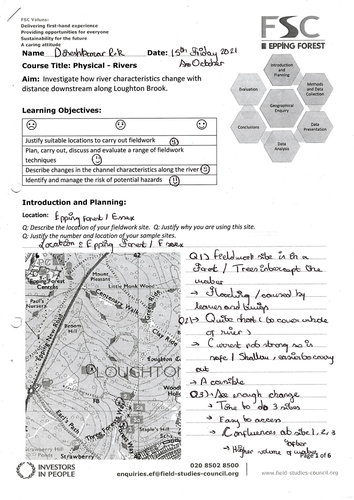 FSC Values:
Delivering first-hand experience
Providing opportunities for everyone
Sustainability for the future
A caring attitude
FSC
EPPING FOREST
Name Date: 15th Friday 2021
October
Course Title: Physical - Rivers
Aim: Investigate how river characteristics change with
distance downstream along Loughton Brook.
Introduction
and
Planning
Methods
and Data
Collection
Data
Presentation
Data
Analysis
Conclusions
Evaluation
Geographical
Enquiry
Learning Objectives:
Justify suitable locations to carry out fieldwork
Plan, carry out, discuss and evaluate a range of fieldwork
techniques
Describe changes in the channel characteristics along the river
Identify and manage the risk of potential hazards
Introduction and Planning:
Location: Epping Forest / Essex
Q: Describe the location of your fieldwork site. Q: Justify why you are using this site.
Q: Justify the number and location of your sample sites.
Location: Epping Forest / Essex
Q1) Fieldwork site is in a
Forest / Trees intercept the
water
→ Flooding / caused by
leaves and twigs
Q2) → Quite short (to cover whole
of river)
→ Current not strong so is
safe / Shallow, easier to carry
out
→ Accessible
Q3) → See enough change
→ Time to do 3 sites
→ Easy to access
→ Confluences at site 1, 2, 3
→ Higher volume of water
Epping Forest
Centre
Paul's
Nursery
Mount
Pleasant
Little Monk Wood
Centenary Walk
Clay Ride
Broom
Hill
Epping New Road
LOUGHTON
Earl's Path
Three Forests Way
Strawberry Hill
Staple's Hill
Strawberry
Page 1 of 6
INVESTORS
IN PEOPLE
020 8502 8500
enquiries.ef@field-studies-council.org
www.field-studies-council.org